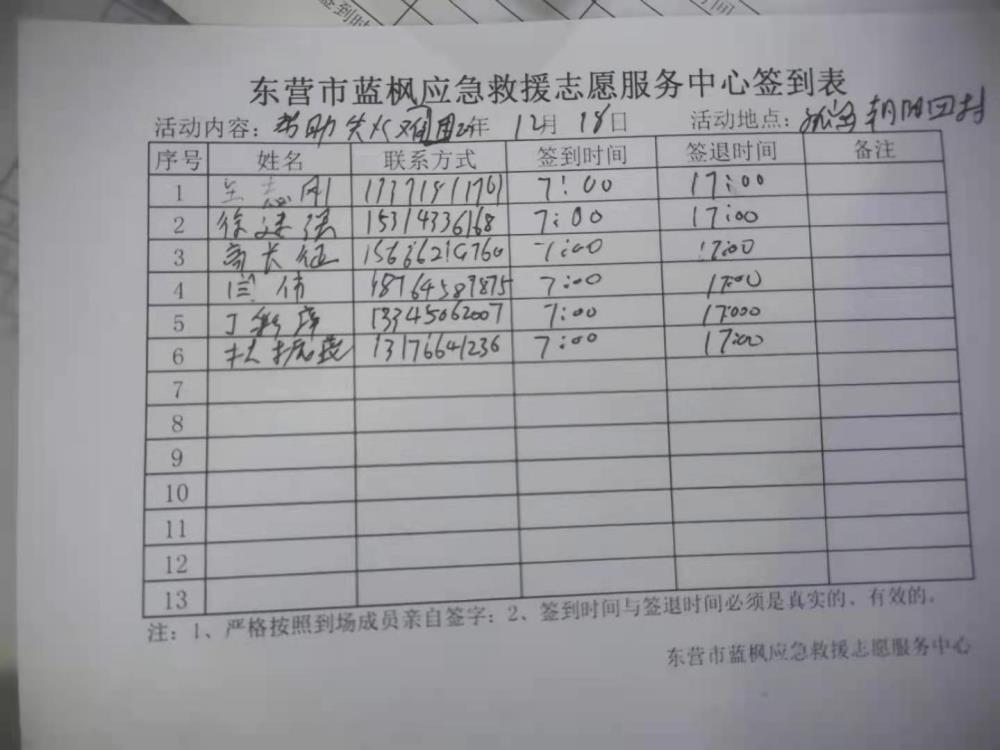 签到时
时间
东营市蓝枫应急救援志愿服务中心签到表
活动内容：帮助失火 年 12月 18日 活动地点： 朝阳四村
序号 姓名 联系方式 签到时间 签退时间 备注
1 志刚 7:00 17:00
2 徐建强 15314336168 7:00 17:00
3 高长征 7:00 17:00
4 闫伟 18764587875 7:00 17:00
5 丁 13345062007 7:00 17:000
6 13176641236 7:00 17:00
7
8
9
10
11
12
13
注：1、严格按照到场成员亲自签字；2、签到时间与签退时间必须是真实的、有效的。
东营市蓝枫应急救援志愿服务中心